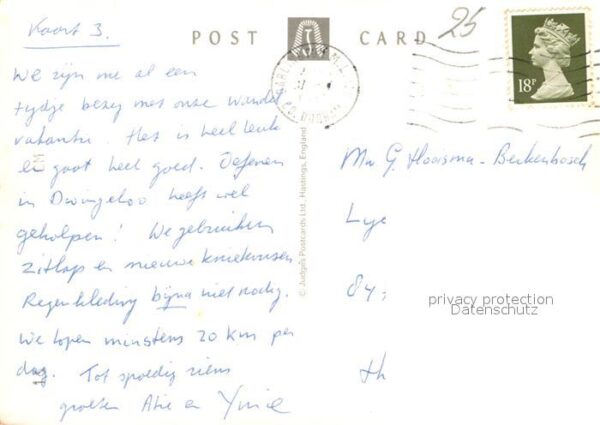 Kaart 3.
POST CARD
25
18P
We zijn nu al een
tydje bezig met onze wandel
vakantie. Het is heel leuk
en gaat heel goed. Oefenen
in Dwingeloo heeft wel
geholpen! We gebruiken
zitlap en nieuwe
Regenkleding bijna niet nodig.
We lopen minstens 20 km per
dag. Tot spoedig ziens
groeten Atie en
© Judges Postcards Ltd. Hastings, England
G. Haaisma - Berkenbosch
84,
privacy protection
Datenschutz